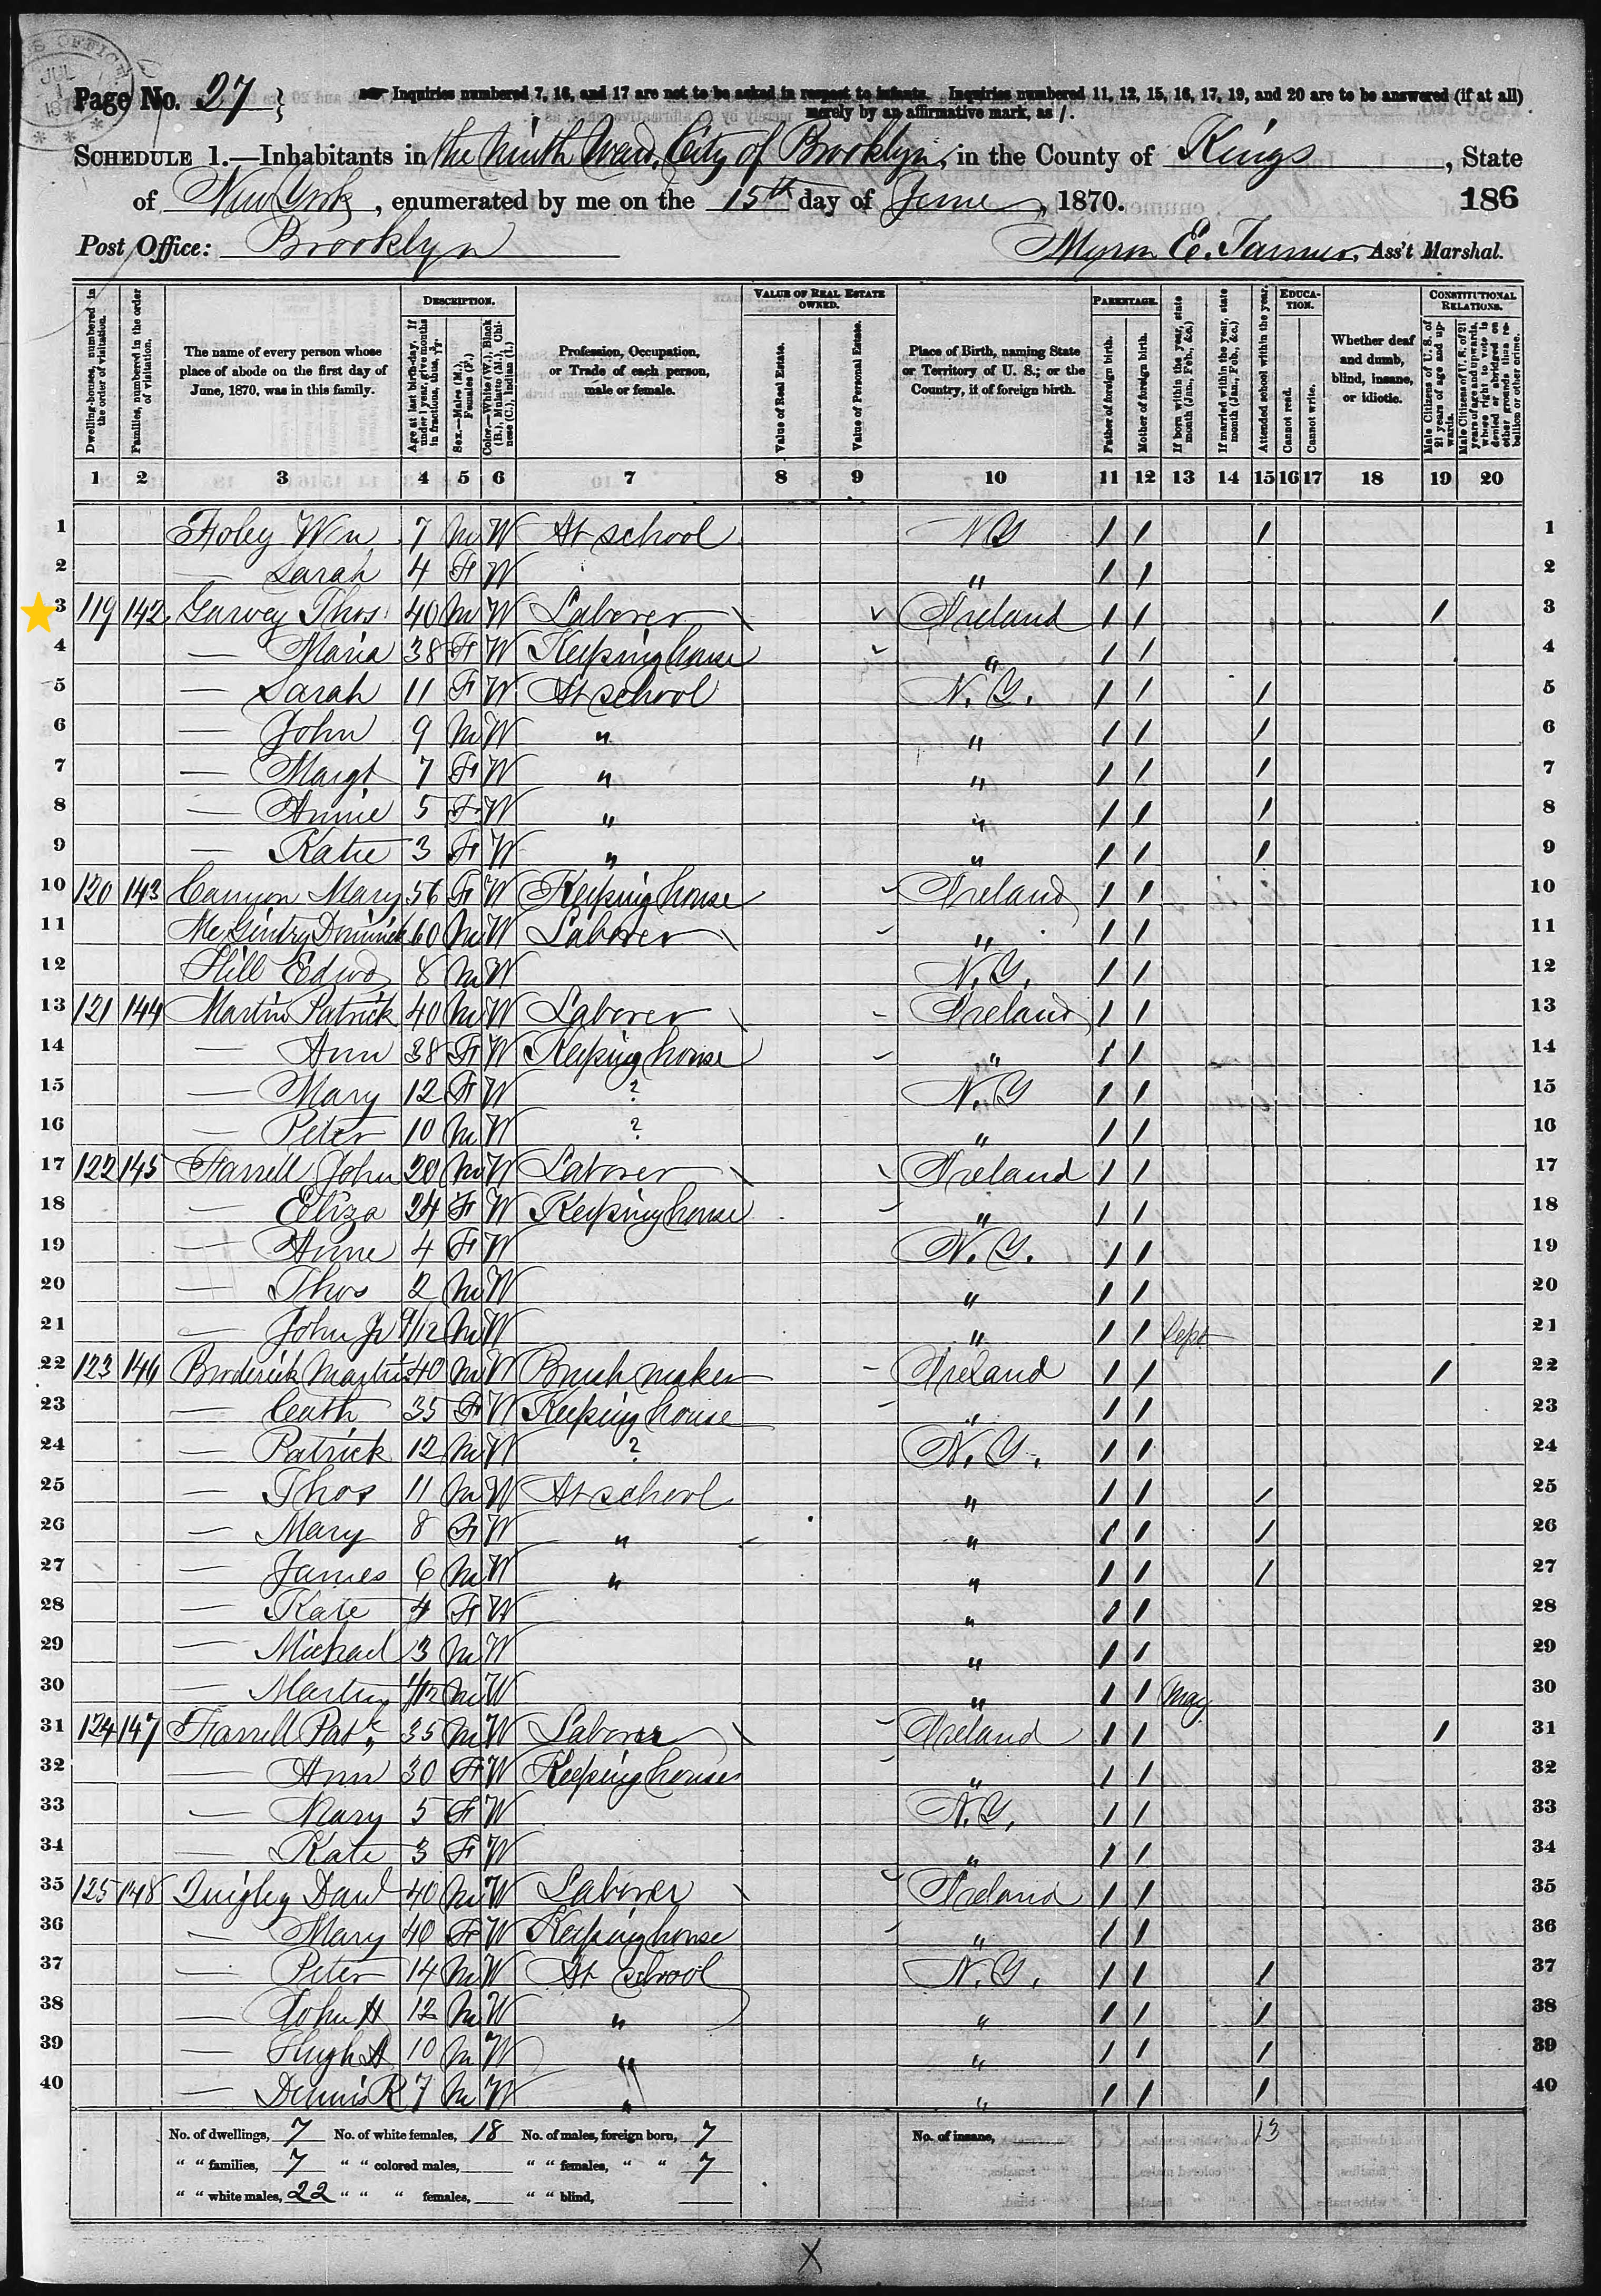 S OFFICE
JUL
1
187
* * *
Page No. 27 }
Inquiries numbered 7, 16, and 17 are not to be asked in respect to infants. Inquiries numbered 11, 12, 15, 16, 17, 19, and 20 are to be answered (if at all)
merely by an affirmative mark, as /.
SCHEDULE 1.—Inhabitants in the Ninth Ward, City of Brooklyn, in the County of Kings, State
of New York, enumerated by me on the 15th day of June, 1870. 186
Post Office: Brooklyn Myron E. Tanner, Ass't Marshal.
Dwelling-houses, numbered in the order of visitation.
Families, numbered in the order of visitation.
The name of every person whose place of abode on the first day of June, 1870, was in this family.
DESCRIPTION.
Age at last birth-day. If under 1 year, give months in fractions, thus, 3/12
Sex.—Males (M.), Females (F.)
Color.—White (W.), Black (B.), Mulatto (M.), Chinese (C.), Indian (I.)
Profession, Occupation, or Trade of each person, male or female.
VALUE OF REAL ESTATE OWNED.
Value of Real Estate.
Value of Personal Estate.
Place of Birth, naming State or Territory of U. S.; or the Country, if of foreign birth.
PARENTAGE.
Father of foreign birth.
Mother of foreign birth.
If born within the year, state month (Jan., Feb., &c.)
If married within the year, state month (Jan., Feb., &c.)
Attended school within the year.
EDUCATION.
Cannot read.
Cannot write.
Whether deaf and dumb, blind, insane, or idiotic.
CONSTITUTIONAL RELATIONS.
Male Citizens of U. S. of 21 years of age and upwards.
Male Citizens of U. S. of 21 years of age and upwards, whose right to vote is denied or abridged on other grounds than rebellion or other crime.
1 2 3 4 5 6 7 8 9 10 11 12 13 14 15 16 17 18 19 20
1 Foley Wm 7 M W At school N Y / / / 1
2 — Sarah 4 F W " / / 2
3 119 142 Garvey Thos. 40 M W Laborer Ireland / / / 3
4 — Maria 38 F W Keeping house " / / 4
5 — Sarah 11 F W At school N. Y. / / / 5
6 — John 9 M W " " / / / 6
7 — Margt 7 F W " " / / / 7
8 — Annie 5 F W " " / / / 8
9 — Katie 3 F W " " / / / 9
10 120 143 Canyon Mary 56 F W Keeping house Ireland / / 10
11 McGintry Dominick 60 M W Laborer " / / 11
12 Hill Edwd 8 M W N. Y. / / 12
13 121 144 Martin Patrick 40 M W Laborer Ireland / / 13
14 — Ann 38 F W Keeping house " / / 14
15 — Mary 12 F W ? N. Y / / 15
16 — Peter 10 M W ? " / / 16
17 122 145 Farrell John 20 M W Laborer Ireland / / 17
18 — Eliza 24 F W Keeping house " / / 18
19 — Anne 4 F W N. Y. / / 19
20 — Thos 2 M W " / / 20
21 — John Jr 9/12 M W " / / Sept 21
22 123 146 Broderick Martin 40 M W Brush maker Ireland / / / 22
23 — Cath 35 F W Keeping house " / / 23
24 — Patrick 12 M W ? N. Y. / / 24
25 — Thos 11 M W At school " / / / 25
26 — Mary 8 F W " " / / / 26
27 — James 6 M W " " / / / 27
28 — Kate 4 F W " / / 28
29 — Michael 3 M W " / / 29
30 — Martin 1/12 M W " / / May 30
31 124 147 Farrell Patk 35 M W Laborer Ireland / / / 31
32 — Ann 30 F W Keeping house " / / 32
33 — Mary 5 F W N. Y. / / 33
34 — Kate 3 F W " / / 34
35 125 148 Quigley Danl 40 M W Laborer Ireland / / 35
36 — Mary 40 F W Keeping house " / / 36
37 — Peter 14 M W At School N. Y. / / / 37
38 — John H 12 M W " " / / / 38
39 — Hugh A 10 M W " " / / / 39
40 — Dennis R 7 M W " " / / / 40
No. of dwellings, 7 No. of white females, 18 No. of males, foreign born, 7 No. of insane, 13
" " families, 7 " " colored males, " " females, " " 7
" " white males, 22 " " " females, " " blind,
X